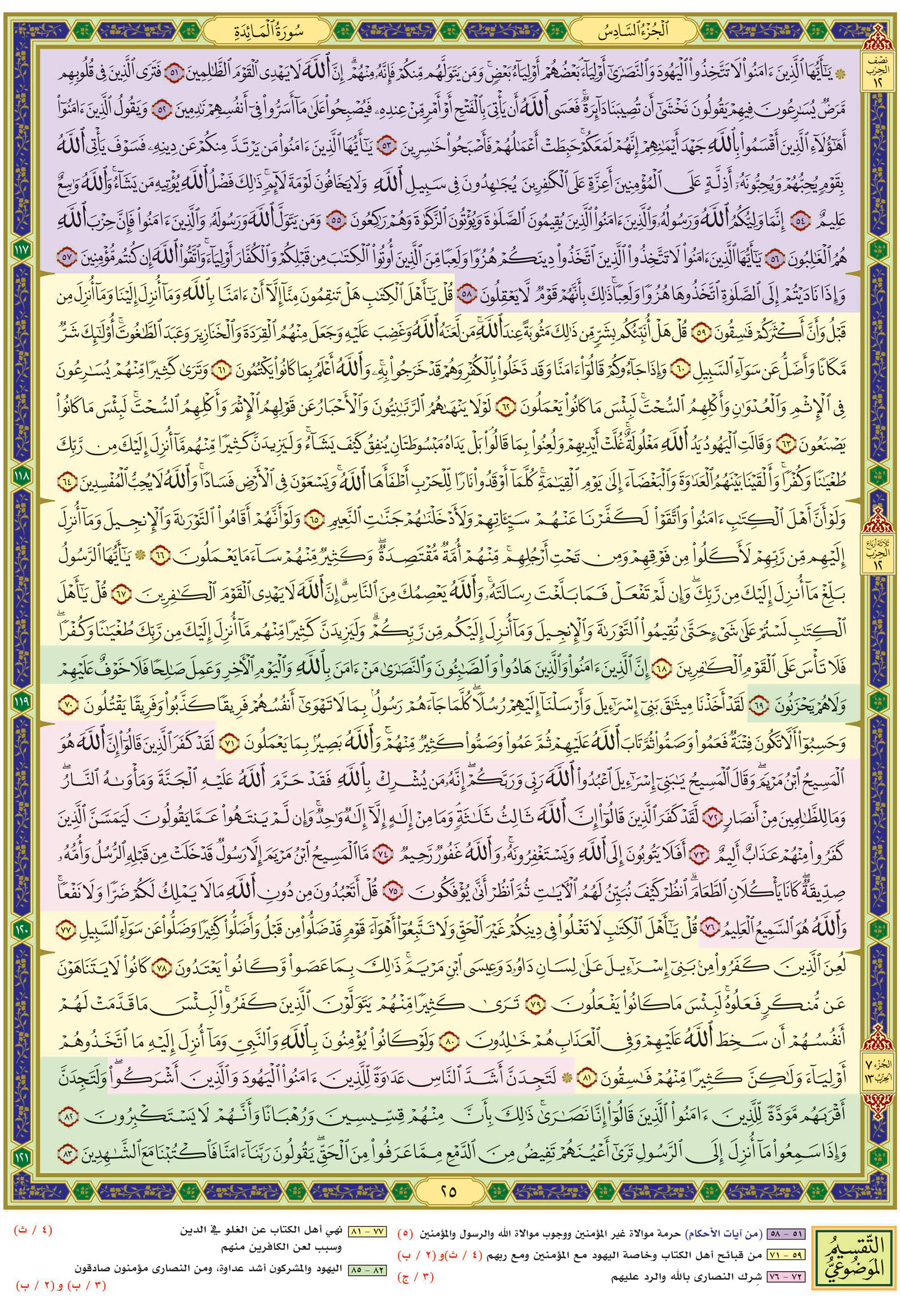 سُورَةُ الْمَائِدَةِ
الْجُزْءُ السَّادِسُ
نصف الحزب ١٢
۞ يَٰٓأَيُّهَا ٱلَّذِينَ ءَامَنُوا۟ لَا تَتَّخِذُوا۟ ٱلْيَهُودَ وَٱلنَّصَٰرَىٰٓ أَوْلِيَآءَ ۘ بَعْضُهُمْ أَوْلِيَآءُ بَعْضٍ ۚ وَمَن يَتَوَلَّهُم مِّنكُمْ فَإِنَّهُۥ مِنْهُمْ ۗ إِنَّ ٱللَّهَ لَا يَهْدِى ٱلْقَوْمَ ٱلظَّٰلِمِينَ ٥١ فَتَرَى ٱلَّذِينَ فِى قُلُوبِهِم
مَّرَضٌ يُسَٰرِعُونَ فِيهِمْ يَقُولُونَ نَخْشَىٰٓ أَن تُصِيبَنَا دَآئِرَةٌ ۚ فَعَسَى ٱللَّهُ أَن يَأْتِىَ بِٱلْفَتْحِ أَوْ أَمْرٍ مِّنْ عِندِهِۦ فَيُصْبِحُوا۟ عَلَىٰ مَآ أَسَرُّوا۟ فِىٓ أَنفُسِهِمْ نَٰدِمِينَ ٥٢ وَيَقُولُ ٱلَّذِينَ ءَامَنُوٓا۟
أَهَٰٓؤُلَآءِ ٱلَّذِينَ أَقْسَمُوا۟ بِٱللَّهِ جَهْدَ أَيْمَٰنِهِمْ ۙ إِنَّهُمْ لَمَعَكُمْ ۚ حَبِطَتْ أَعْمَٰلُهُمْ فَأَصْبَحُوا۟ خَٰسِرِينَ ٥٣ يَٰٓأَيُّهَا ٱلَّذِينَ ءَامَنُوا۟ مَن يَرْتَدَّ مِنكُمْ عَن دِينِهِۦ فَسَوْفَ يَأْتِى ٱللَّهُ
بِقَوْمٍ يُحِبُّهُمْ وَيُحِبُّونَهُۥٓ أَذِلَّةٍ عَلَى ٱلْمُؤْمِنِينَ أَعِزَّةٍ عَلَى ٱلْكَٰفِرِينَ يُجَٰهِدُونَ فِى سَبِيلِ ٱللَّهِ وَلَا يَخَافُونَ لَوْمَةَ لَآئِمٍ ۚ ذَٰلِكَ فَضْلُ ٱللَّهِ يُؤْتِيهِ مَن يَشَآءُ ۚ وَٱللَّهُ وَٰسِعٌ
عَلِيمٌ ٥٤ إِنَّمَا وَلِيُّكُمُ ٱللَّهُ وَرَسُولُهُۥ وَٱلَّذِينَ ءَامَنُوا۟ ٱلَّذِينَ يُقِيمُونَ ٱلصَّلَوٰةَ وَيُؤْتُونَ ٱلزَّكَوٰةَ وَهُمْ رَٰكِعُونَ ٥٥ وَمَن يَتَوَلَّ ٱللَّهَ وَرَسُولَهُۥ وَٱلَّذِينَ ءَامَنُوا۟ فَإِنَّ حِزْبَ ٱللَّهِ
هُمُ ٱلْغَٰلِبُونَ ٥٦ يَٰٓأَيُّهَا ٱلَّذِينَ ءَامَنُوا۟ لَا تَتَّخِذُوا۟ ٱلَّذِينَ ٱتَّخَذُوا۟ دِينَكُمْ هُزُوًا وَلَعِبًا مِّنَ ٱلَّذِينَ أُوتُوا۟ ٱلْكِتَٰبَ مِن قَبْلِكُمْ وَٱلْكُفَّارَ أَوْلِيَآءَ ۚ وَٱتَّقُوا۟ ٱللَّهَ إِن كُنتُم مُّؤْمِنِينَ ٥٧
١١٧
وَإِذَا نَادَيْتُمْ إِلَى ٱلصَّلَوٰةِ ٱتَّخَذُوهَا هُزُوًا وَلَعِبًا ۚ ذَٰلِكَ بِأَنَّهُمْ قَوْمٌ لَّا يَعْقِلُونَ ٥٨ قُلْ يَٰٓأَهْلَ ٱلْكِتَٰبِ هَلْ تَنقِمُونَ مِنَّآ إِلَّآ أَنْ ءَامَنَّا بِٱللَّهِ وَمَآ أُنزِلَ إِلَيْنَا وَمَآ أُنزِلَ مِن
قَبْلُ وَأَنَّ أَكْثَرَكُمْ فَٰسِقُونَ ٥٩ قُلْ هَلْ أُنَبِّئُكُم بِشَرٍّ مِّن ذَٰلِكَ مَثُوبَةً عِندَ ٱللَّهِ ۚ مَن لَّعَنَهُ ٱللَّهُ وَغَضِبَ عَلَيْهِ وَجَعَلَ مِنْهُمُ ٱلْقِرَدَةَ وَٱلْخَنَازِيرَ وَعَبَدَ ٱلطَّٰغُوتَ ۚ أُو۟لَٰٓئِكَ شَرٌّ
مَّكَانًا وَأَضَلُّ عَن سَوَآءِ ٱلسَّبِيلِ ٦٠ وَإِذَا جَآءُوكُمْ قَالُوٓا۟ ءَامَنَّا وَقَد دَّخَلُوا۟ بِٱلْكُفْرِ وَهُمْ قَدْ خَرَجُوا۟ بِهِۦ ۚ وَٱللَّهُ أَعْلَمُ بِمَا كَانُوا۟ يَكْتُمُونَ ٦١ وَتَرَىٰ كَثِيرًا مِّنْهُمْ يُسَٰرِعُونَ
فِى ٱلْإِثْمِ وَٱلْعُدْوَٰنِ وَأَكْلِهِمُ ٱلسُّحْتَ ۚ لَبِئْسَ مَا كَانُوا۟ يَعْمَلُونَ ٦٢ لَوْلَا يَنْهَىٰهُمُ ٱلرَّبَّٰنِيُّونَ وَٱلْأَحْبَارُ عَن قَوْلِهِمُ ٱلْإِثْمَ وَأَكْلِهِمُ ٱلسُّحْتَ ۚ لَبِئْسَ مَا كَانُوا۟
يَصْنَعُونَ ٦٣ وَقَالَتِ ٱلْيَهُودُ يَدُ ٱللَّهِ مَغْلُولَةٌ ۚ غُلَّتْ أَيْدِيهِمْ وَلُعِنُوا۟ بِمَا قَالُوا۟ ۘ بَلْ يَدَاهُ مَبْسُوطَتَانِ يُنفِقُ كَيْفَ يَشَآءُ ۚ وَلَيَزِيدَنَّ كَثِيرًا مِّنْهُم مَّآ أُنزِلَ إِلَيْكَ مِن رَّبِّكَ
طُغْيَٰنًا وَكُفْرًا ۚ وَأَلْقَيْنَا بَيْنَهُمُ ٱلْعَدَٰوَةَ وَٱلْبَغْضَآءَ إِلَىٰ يَوْمِ ٱلْقِيَٰمَةِ ۚ كُلَّمَآ أَوْقَدُوا۟ نَارًا لِّلْحَرْبِ أَطْفَأَهَا ٱللَّهُ ۚ وَيَسْعَوْنَ فِى ٱلْأَرْضِ فَسَادًا ۚ وَٱللَّهُ لَا يُحِبُّ ٱلْمُفْسِدِينَ ٦٤
١١٨
وَلَوْ أَنَّ أَهْلَ ٱلْكِتَٰبِ ءَامَنُوا۟ وَٱتَّقَوْا۟ لَكَفَّرْنَا عَنْهُمْ سَيِّـَٔاتِهِمْ وَلَأَدْخَلْنَٰهُمْ جَنَّٰتِ ٱلنَّعِيمِ ٦٥ وَلَوْ أَنَّهُمْ أَقَامُوا۟ ٱلتَّوْرَىٰةَ وَٱلْإِنجِيلَ وَمَآ أُنزِلَ
ثلاثة أرباع الحزب ١٢
إِلَيْهِم مِّن رَّبِّهِمْ لَأَكَلُوا۟ مِن فَوْقِهِمْ وَمِن تَحْتِ أَرْجُلِهِم ۚ مِّنْهُمْ أُمَّةٌ مُّقْتَصِدَةٌ ۖ وَكَثِيرٌ مِّنْهُمْ سَآءَ مَا يَعْمَلُونَ ٦٦ ۞ يَٰٓأَيُّهَا ٱلرَّسُولُ
بَلِّغْ مَآ أُنزِلَ إِلَيْكَ مِن رَّبِّكَ ۖ وَإِن لَّمْ تَفْعَلْ فَمَا بَلَّغْتَ رِسَالَتَهُۥ ۚ وَٱللَّهُ يَعْصِمُكَ مِنَ ٱلنَّاسِ ۗ إِنَّ ٱللَّهَ لَا يَهْدِى ٱلْقَوْمَ ٱلْكَٰفِرِينَ ٦٧ قُلْ يَٰٓأَهْلَ
ٱلْكِتَٰبِ لَسْتُمْ عَلَىٰ شَىْءٍ حَتَّىٰ تُقِيمُوا۟ ٱلتَّوْرَىٰةَ وَٱلْإِنجِيلَ وَمَآ أُنزِلَ إِلَيْكُم مِّن رَّبِّكُمْ ۗ وَلَيَزِيدَنَّ كَثِيرًا مِّنْهُم مَّآ أُنزِلَ إِلَيْكَ مِن رَّبِّكَ طُغْيَٰنًا وَكُفْرًا ۖ
فَلَا تَأْسَ عَلَى ٱلْقَوْمِ ٱلْكَٰفِرِينَ ٦٨ إِنَّ ٱلَّذِينَ ءَامَنُوا۟ وَٱلَّذِينَ هَادُوا۟ وَٱلصَّٰبِـُٔونَ وَٱلنَّصَٰرَىٰ مَنْ ءَامَنَ بِٱللَّهِ وَٱلْيَوْمِ ٱلْـَٔاخِرِ وَعَمِلَ صَٰلِحًا فَلَا خَوْفٌ عَلَيْهِمْ
وَلَا هُمْ يَحْزَنُونَ ٦٩ لَقَدْ أَخَذْنَا مِيثَٰقَ بَنِىٓ إِسْرَٰٓءِيلَ وَأَرْسَلْنَآ إِلَيْهِمْ رُسُلًا ۖ كُلَّمَا جَآءَهُمْ رَسُولٌۢ بِمَا لَا تَهْوَىٰٓ أَنفُسُهُمْ فَرِيقًا كَذَّبُوا۟ وَفَرِيقًا يَقْتُلُونَ ٧٠
١١٩
وَحَسِبُوٓا۟ أَلَّا تَكُونَ فِتْنَةٌ فَعَمُوا۟ وَصَمُّوا۟ ثُمَّ تَابَ ٱللَّهُ عَلَيْهِمْ ثُمَّ عَمُوا۟ وَصَمُّوا۟ كَثِيرٌ مِّنْهُمْ ۚ وَٱللَّهُ بَصِيرٌۢ بِمَا يَعْمَلُونَ ٧١ لَقَدْ كَفَرَ ٱلَّذِينَ قَالُوٓا۟ إِنَّ ٱللَّهَ هُوَ
ٱلْمَسِيحُ ٱبْنُ مَرْيَمَ ۖ وَقَالَ ٱلْمَسِيحُ يَٰبَنِىٓ إِسْرَٰٓءِيلَ ٱعْبُدُوا۟ ٱللَّهَ رَبِّى وَرَبَّكُمْ ۖ إِنَّهُۥ مَن يُشْرِكْ بِٱللَّهِ فَقَدْ حَرَّمَ ٱللَّهُ عَلَيْهِ ٱلْجَنَّةَ وَمَأْوَىٰهُ ٱلنَّارُ ۖ
وَمَا لِلظَّٰلِمِينَ مِنْ أَنصَارٍ ٧٢ لَّقَدْ كَفَرَ ٱلَّذِينَ قَالُوٓا۟ إِنَّ ٱللَّهَ ثَالِثُ ثَلَٰثَةٍ ۘ وَمَا مِنْ إِلَٰهٍ إِلَّآ إِلَٰهٌ وَٰحِدٌ ۚ وَإِن لَّمْ يَنتَهُوا۟ عَمَّا يَقُولُونَ لَيَمَسَّنَّ ٱلَّذِينَ
كَفَرُوا۟ مِنْهُمْ عَذَابٌ أَلِيمٌ ٧٣ أَفَلَا يَتُوبُونَ إِلَى ٱللَّهِ وَيَسْتَغْفِرُونَهُۥ ۚ وَٱللَّهُ غَفُورٌ رَّحِيمٌ ٧٤ مَّا ٱلْمَسِيحُ ٱبْنُ مَرْيَمَ إِلَّا رَسُولٌ قَدْ خَلَتْ مِن قَبْلِهِ ٱلرُّسُلُ وَأُمُّهُۥ
صِدِّيقَةٌ ۖ كَانَا يَأْكُلَانِ ٱلطَّعَامَ ۗ ٱنظُرْ كَيْفَ نُبَيِّنُ لَهُمُ ٱلْـَٔايَٰتِ ثُمَّ ٱنظُرْ أَنَّىٰ يُؤْفَكُونَ ٧٥ قُلْ أَتَعْبُدُونَ مِن دُونِ ٱللَّهِ مَا لَا يَمْلِكُ لَكُمْ ضَرًّا وَلَا نَفْعًا ۚ
وَٱللَّهُ هُوَ ٱلسَّمِيعُ ٱلْعَلِيمُ ٧٦ قُلْ يَٰٓأَهْلَ ٱلْكِتَٰبِ لَا تَغْلُوا۟ فِى دِينِكُمْ غَيْرَ ٱلْحَقِّ وَلَا تَتَّبِعُوٓا۟ أَهْوَآءَ قَوْمٍ قَدْ ضَلُّوا۟ مِن قَبْلُ وَأَضَلُّوا۟ كَثِيرًا وَضَلُّوا۟ عَن سَوَآءِ ٱلسَّبِيلِ ٧٧
١٢٠
لُعِنَ ٱلَّذِينَ كَفَرُوا۟ مِنۢ بَنِىٓ إِسْرَٰٓءِيلَ عَلَىٰ لِسَانِ دَاوُۥدَ وَعِيسَى ٱبْنِ مَرْيَمَ ۚ ذَٰلِكَ بِمَا عَصَوا۟ وَّكَانُوا۟ يَعْتَدُونَ ٧٨ كَانُوا۟ لَا يَتَنَاهَوْنَ
عَن مُّنكَرٍ فَعَلُوهُ ۚ لَبِئْسَ مَا كَانُوا۟ يَفْعَلُونَ ٧٩ تَرَىٰ كَثِيرًا مِّنْهُمْ يَتَوَلَّوْنَ ٱلَّذِينَ كَفَرُوا۟ ۚ لَبِئْسَ مَا قَدَّمَتْ لَهُمْ
أَنفُسُهُمْ أَن سَخِطَ ٱللَّهُ عَلَيْهِمْ وَفِى ٱلْعَذَابِ هُمْ خَٰلِدُونَ ٨٠ وَلَوْ كَانُوا۟ يُؤْمِنُونَ بِٱللَّهِ وَٱلنَّبِىِّ وَمَآ أُنزِلَ إِلَيْهِ مَا ٱتَّخَذُوهُمْ
الجزء ٧ الحزب ١٣
أَوْلِيَآءَ وَلَٰكِنَّ كَثِيرًا مِّنْهُمْ فَٰسِقُونَ ٨١ ۞ لَتَجِدَنَّ أَشَدَّ ٱلنَّاسِ عَدَٰوَةً لِّلَّذِينَ ءَامَنُوا۟ ٱلْيَهُودَ وَٱلَّذِينَ أَشْرَكُوا۟ ۖ وَلَتَجِدَنَّ
أَقْرَبَهُم مَّوَدَّةً لِّلَّذِينَ ءَامَنُوا۟ ٱلَّذِينَ قَالُوٓا۟ إِنَّا نَصَٰرَىٰ ۚ ذَٰلِكَ بِأَنَّ مِنْهُمْ قِسِّيسِينَ وَرُهْبَانًا وَأَنَّهُمْ لَا يَسْتَكْبِرُونَ ٨٢
وَإِذَا سَمِعُوا۟ مَآ أُنزِلَ إِلَى ٱلرَّسُولِ تَرَىٰٓ أَعْيُنَهُمْ تَفِيضُ مِنَ ٱلدَّمْعِ مِمَّا عَرَفُوا۟ مِنَ ٱلْحَقِّ ۖ يَقُولُونَ رَبَّنَآ ءَامَنَّا فَٱكْتُبْنَا مَعَ ٱلشَّٰهِدِينَ ٨٣
١٢١
٢٥
التَّقسِيمُ المَوضُوعِيُّ
٥١ - ٥٨ (من آيات الأحكام) حرمة موالاة غير المؤمنين ووجوب موالاة الله والرسول والمؤمنين (٥)
٥٩ - ٧١ من قبائح أهل الكتاب وخاصة اليهود مع المؤمنين ومع ربهم (٤ / ث) و (٢ / ب)
٧٢ - ٧٦ شرك النصارى بالله والرد عليهم (٣ / ج)
٧٧ - ٨١ نهي أهل الكتاب عن الغلو في الدين (٤ / ث)
وسبب لعن الكافرين منهم
٨٢ - ٨٥ اليهود والمشركون أشد عداوة، ومن النصارى مؤمنون صادقون
(٣ / ب) و (٢ / ب)